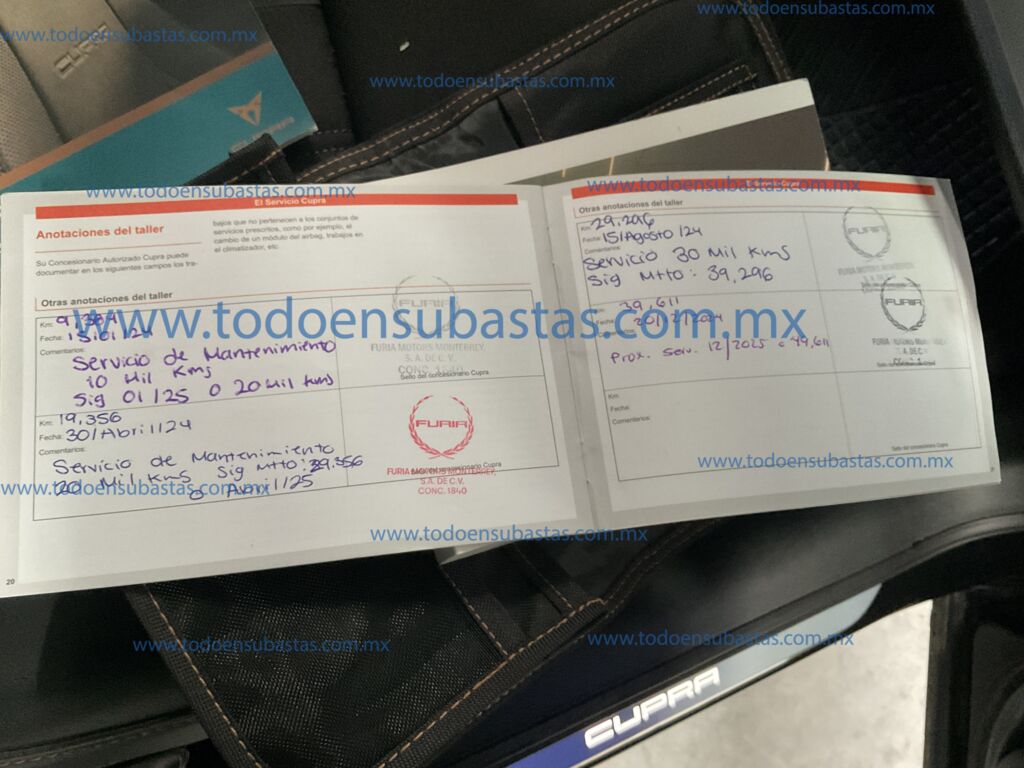 www.todoensubastas.com.mx
www.todoensubastas.com.mx
www.todoensubastas.com.mx
CUPRA
www.todoensubastas.com.mx
www.todoensubastas.com.mx
El Servicio Cupra
Anotaciones del taller
Su Concesionario Autorizado Cupra puede
documentar en los siguientes campos los tra-
bajos que no pertenecen a los conjuntos de
servicios prescritos, como por ejemplo, el
cambio de un módulo del airbag, trabajos en
el climatizador, etc.
Otras anotaciones del taller
www.todoensubastas.com.mx
Km:
Fecha: 15/01/24
Comentarios:
Servicio de Mantenimiento
10 Mil Kms
Sig 01/25 o 20 Mil kms
FURIA
FURIA MOTORS MONTERREY,
S.A. DE C.V.
CONC. 1840
Sello del concesionario Cupra
Km: 19,356
Fecha: 30/Abril/24
Comentarios:
Servicio de Mantenimiento
20 Mil Kms Sig Mtto: 29.356
o Abril/25
FURIA
FURIA MOTORS MONTERREY,
S.A. DE C.V.
CONC. 1840
www.todoensubastas.com.mx
20
Otras anotaciones del taller
Km: 29,296
Fecha: 15/Agosto/24
Comentarios:
Servicio 30 Mil Kms
Sig Mtto: 39,296
FURIA
FURIA MOTORS MONTERREY,
39,611
20/12/2024
Prox. Serv. 12/2025 o 49,611
FURIA
S.A. DE C.V.
Km:
Fecha:
Comentarios:
Sello del concesionario Cupra
www.todoensubastas.com.mx
www.todoensubastas.com.mx
www.todoensubastas.com.mx
www.todoensubastas.com.mx
CUPRA